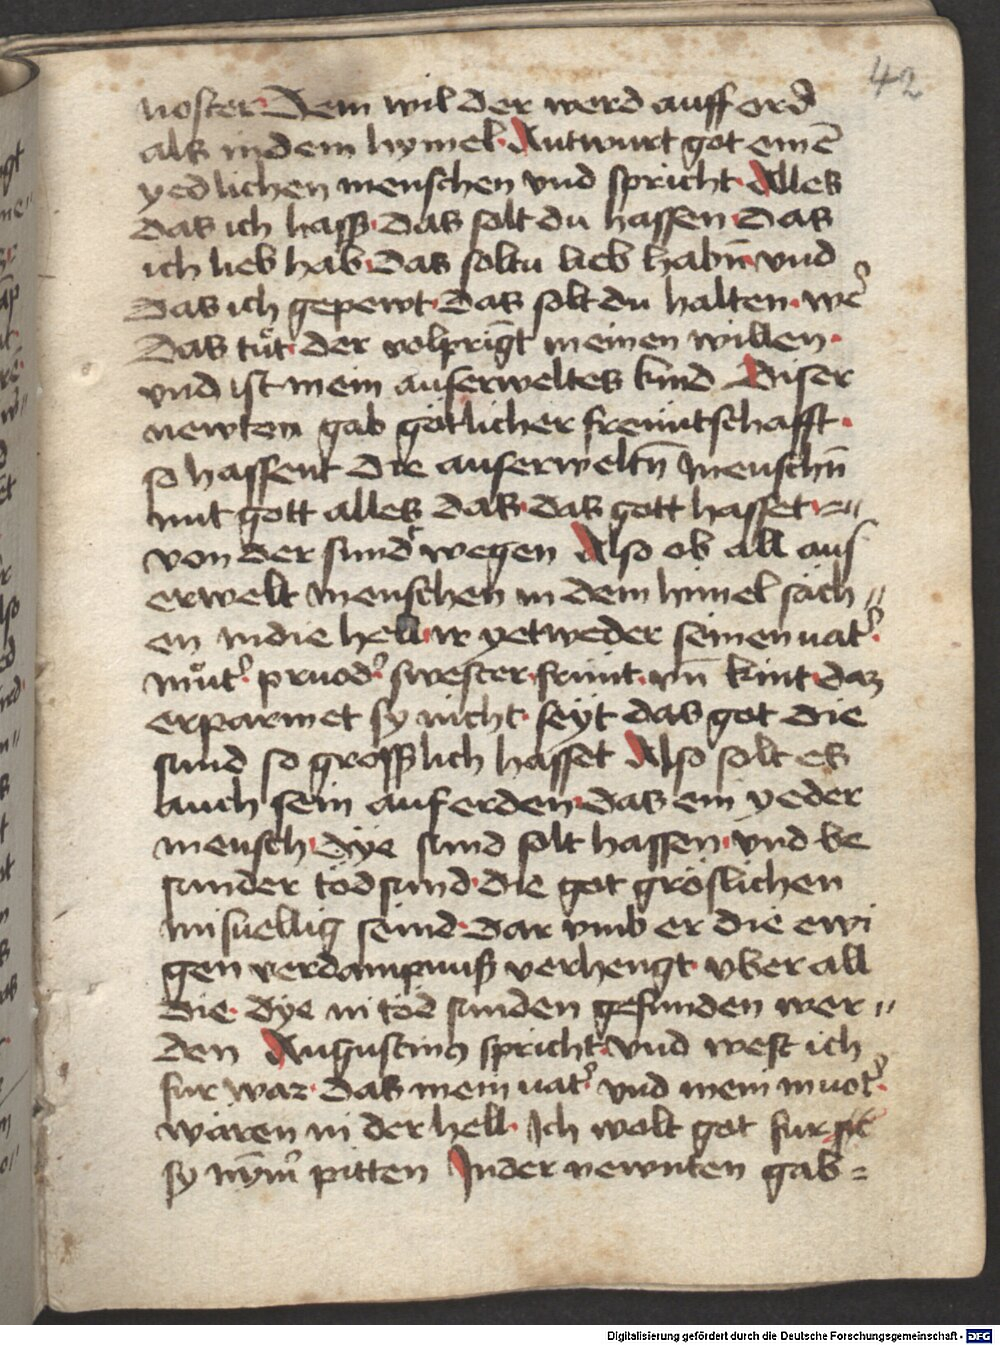 42
noster Dem wil der werd auff erd
als in dem hymel· Antwurt got einē
yedlichen menschen vnd spricht· Alles
das ich hass· das solt du hassen· Das
ich lieb hab· das soltu lieb habn̄ vnd
das ich gepewt· das solt du halten· we᷑
das tůt· der volpringt meinen willen·
vnd ist mein auserweltes kind Diser
newten gab götlicher freüntschafft·
so hassent die auserweltn̄ menschn̄
mit gott alles das· das gott hasset·
von der sund wegen Also ob all aus
erwelt menschen in dem himel säch〃
en in die hell· ir yetweder seinen uat᷑·
můt᷑· pruod᷑· swester· frünt· vn̄ kint· daz
erparmet sy nicht· seyt das got die
sund so grosslich hasset Also solt es
auch sein auf erden· das ein yeder
mensch· dÿe sund solt hassen· vnd be
sunder tödsund· die got gröslichen
misuellig seind· dar vmb er die ewi
gen verdampnuß verhengt· vber all
die· dÿe in töd sunden gefunden wer〃
den Augustinꝰ spricht· vnd west ich
fur war· das mein uat᷑ vnd mein muot᷑·
wären in der hell· Ich wolt got fur
sy nym᷑ pitten In der newnten gab=
Digitalisierung gefördert durch die Deutsche Forschungsgemeinschaft - DFG